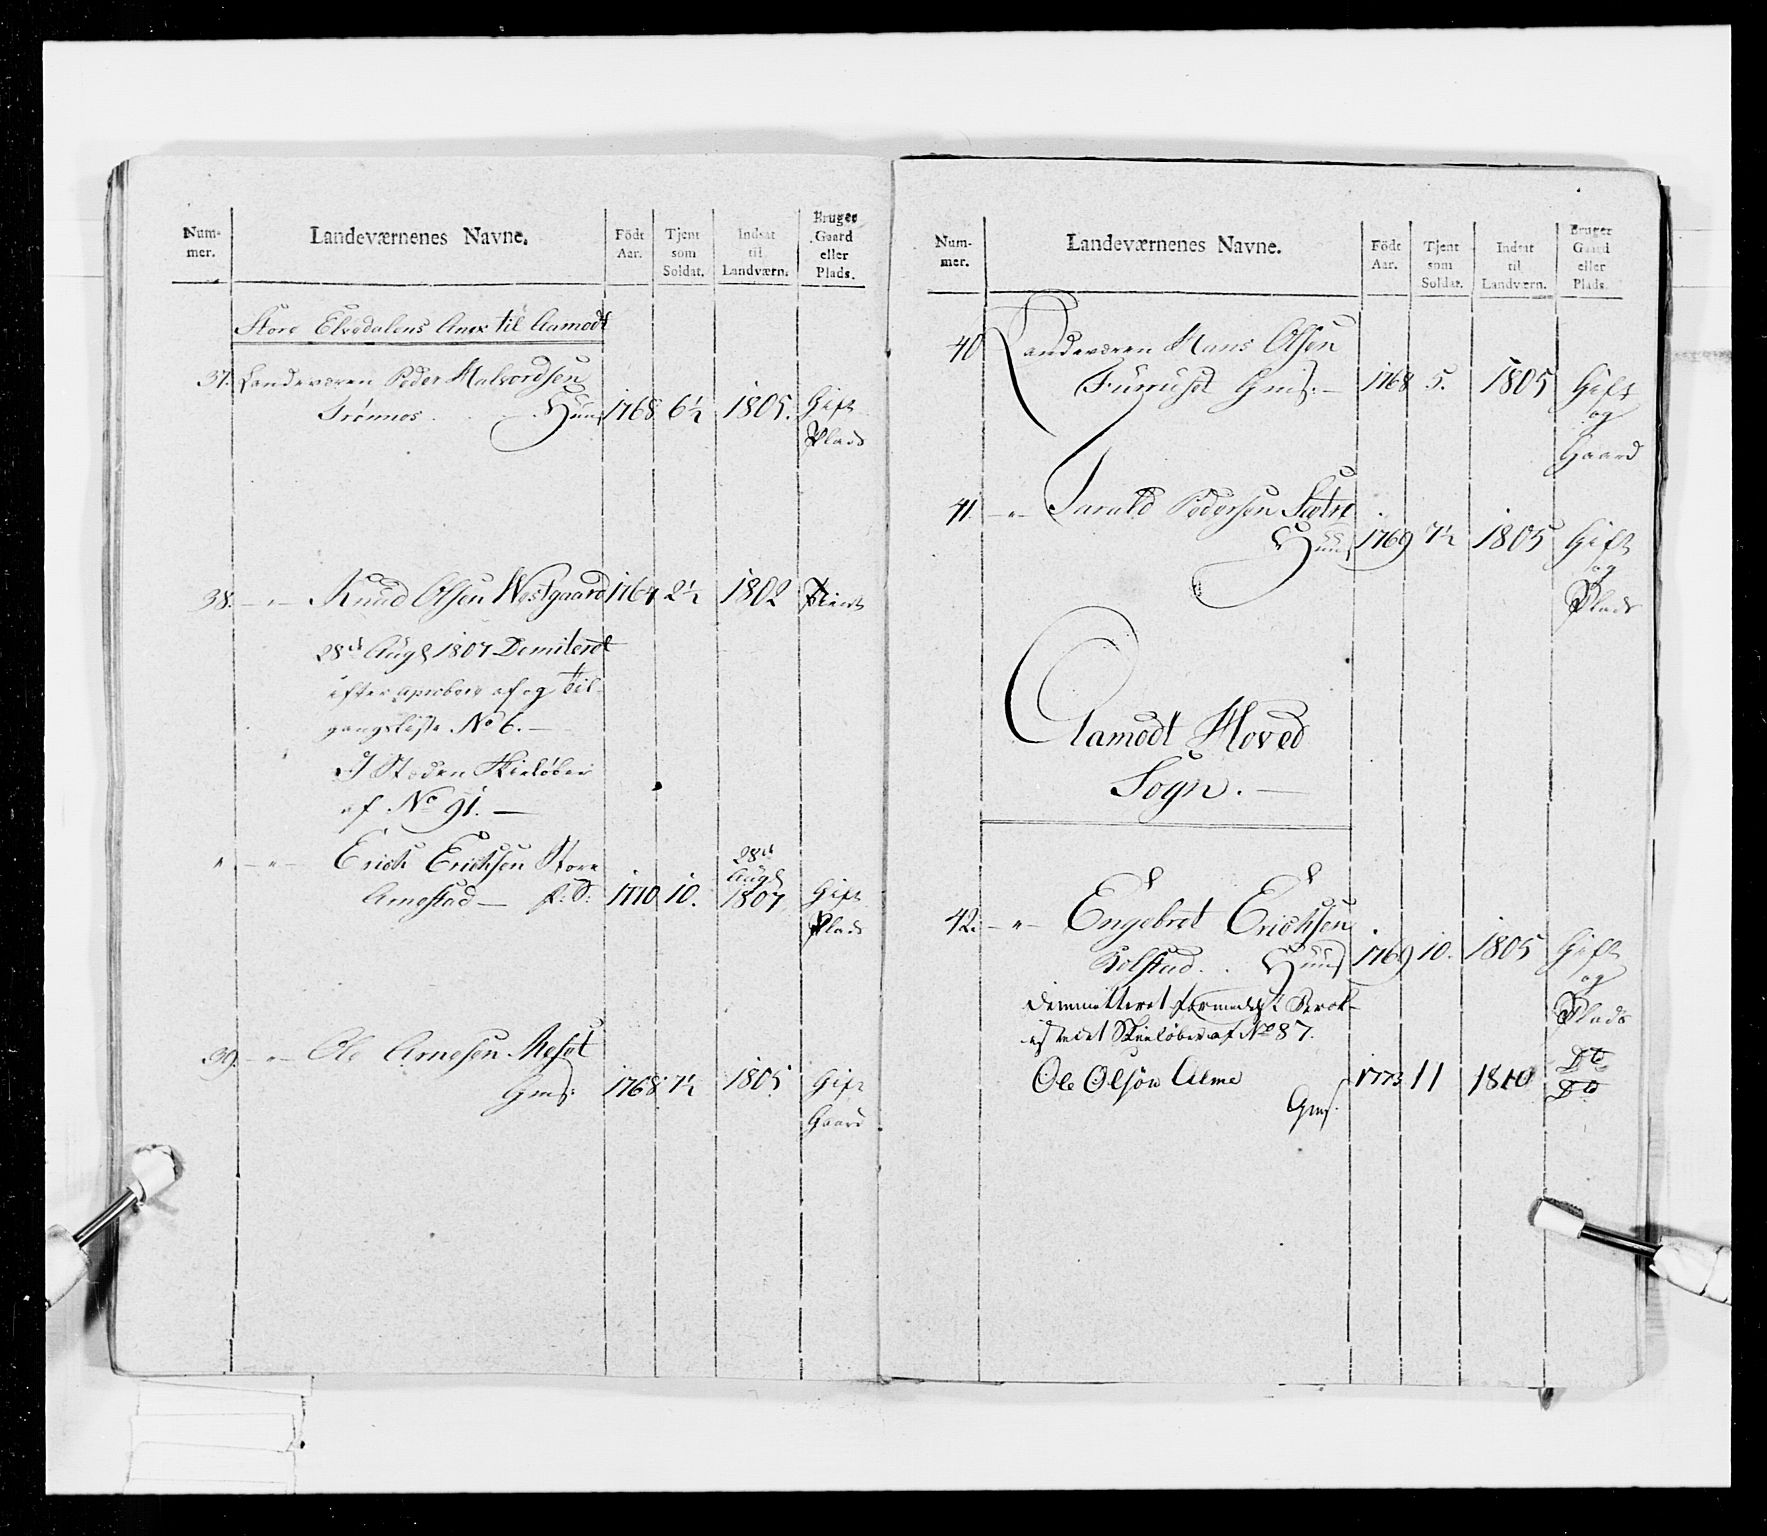 Num-
mer.
Landeværnenes Navne.
Födt
Aar.
Tjent
som
Soldat.
Indsat
til
Landværn.
Bruger
Gaard
eller
Plads.
Store Elvedalens Anex til Aamodt
37. Landeværn Peder Halvordsen
Trønnes. Huus 1768 6½ 1805. Gift
Plads
38. — " — Knud Olsen Westgaard 1764 2½ 1802
28de Augt 1807 Demiterdt
efter aprobere af og til-
gangsliste No 6. —
I Steden Skieløber
af No 91. —
" — " — Erich Erichsen Store
28de
Augt
Arnestad — F: S: 1770 10. 1807 Gift
Plads
39. — " — Ole Arnesen Messet
Gms: 1768 7½ 1805 Gift
Gaard
Num-
mer.
Landeværnenes Navne.
Födt
Aar.
Tjent
som
Soldat.
Indsat
til
Landværn.
Bruger
Gaard
eller
Plads.
40 Landeværn Hans Olsen
Furuset Gms: — 1768 5. 1805 Gift
og
Gaard
41. — " — Tarald Pedersen Sætre
Huus 1769 7½ 1805 Gift
og
Plads
Aamodt Hoved
Sogn. —
42. — " — Engebret Erichsen
Kolstad. . Huus 1769 10. 1805 Gift
og
Plads
Demmitteret formedelst Brok-
istedet Skieløber af No 87.
Ole Olsøn Alme 1773 11 1810 Do
Do
Gms.